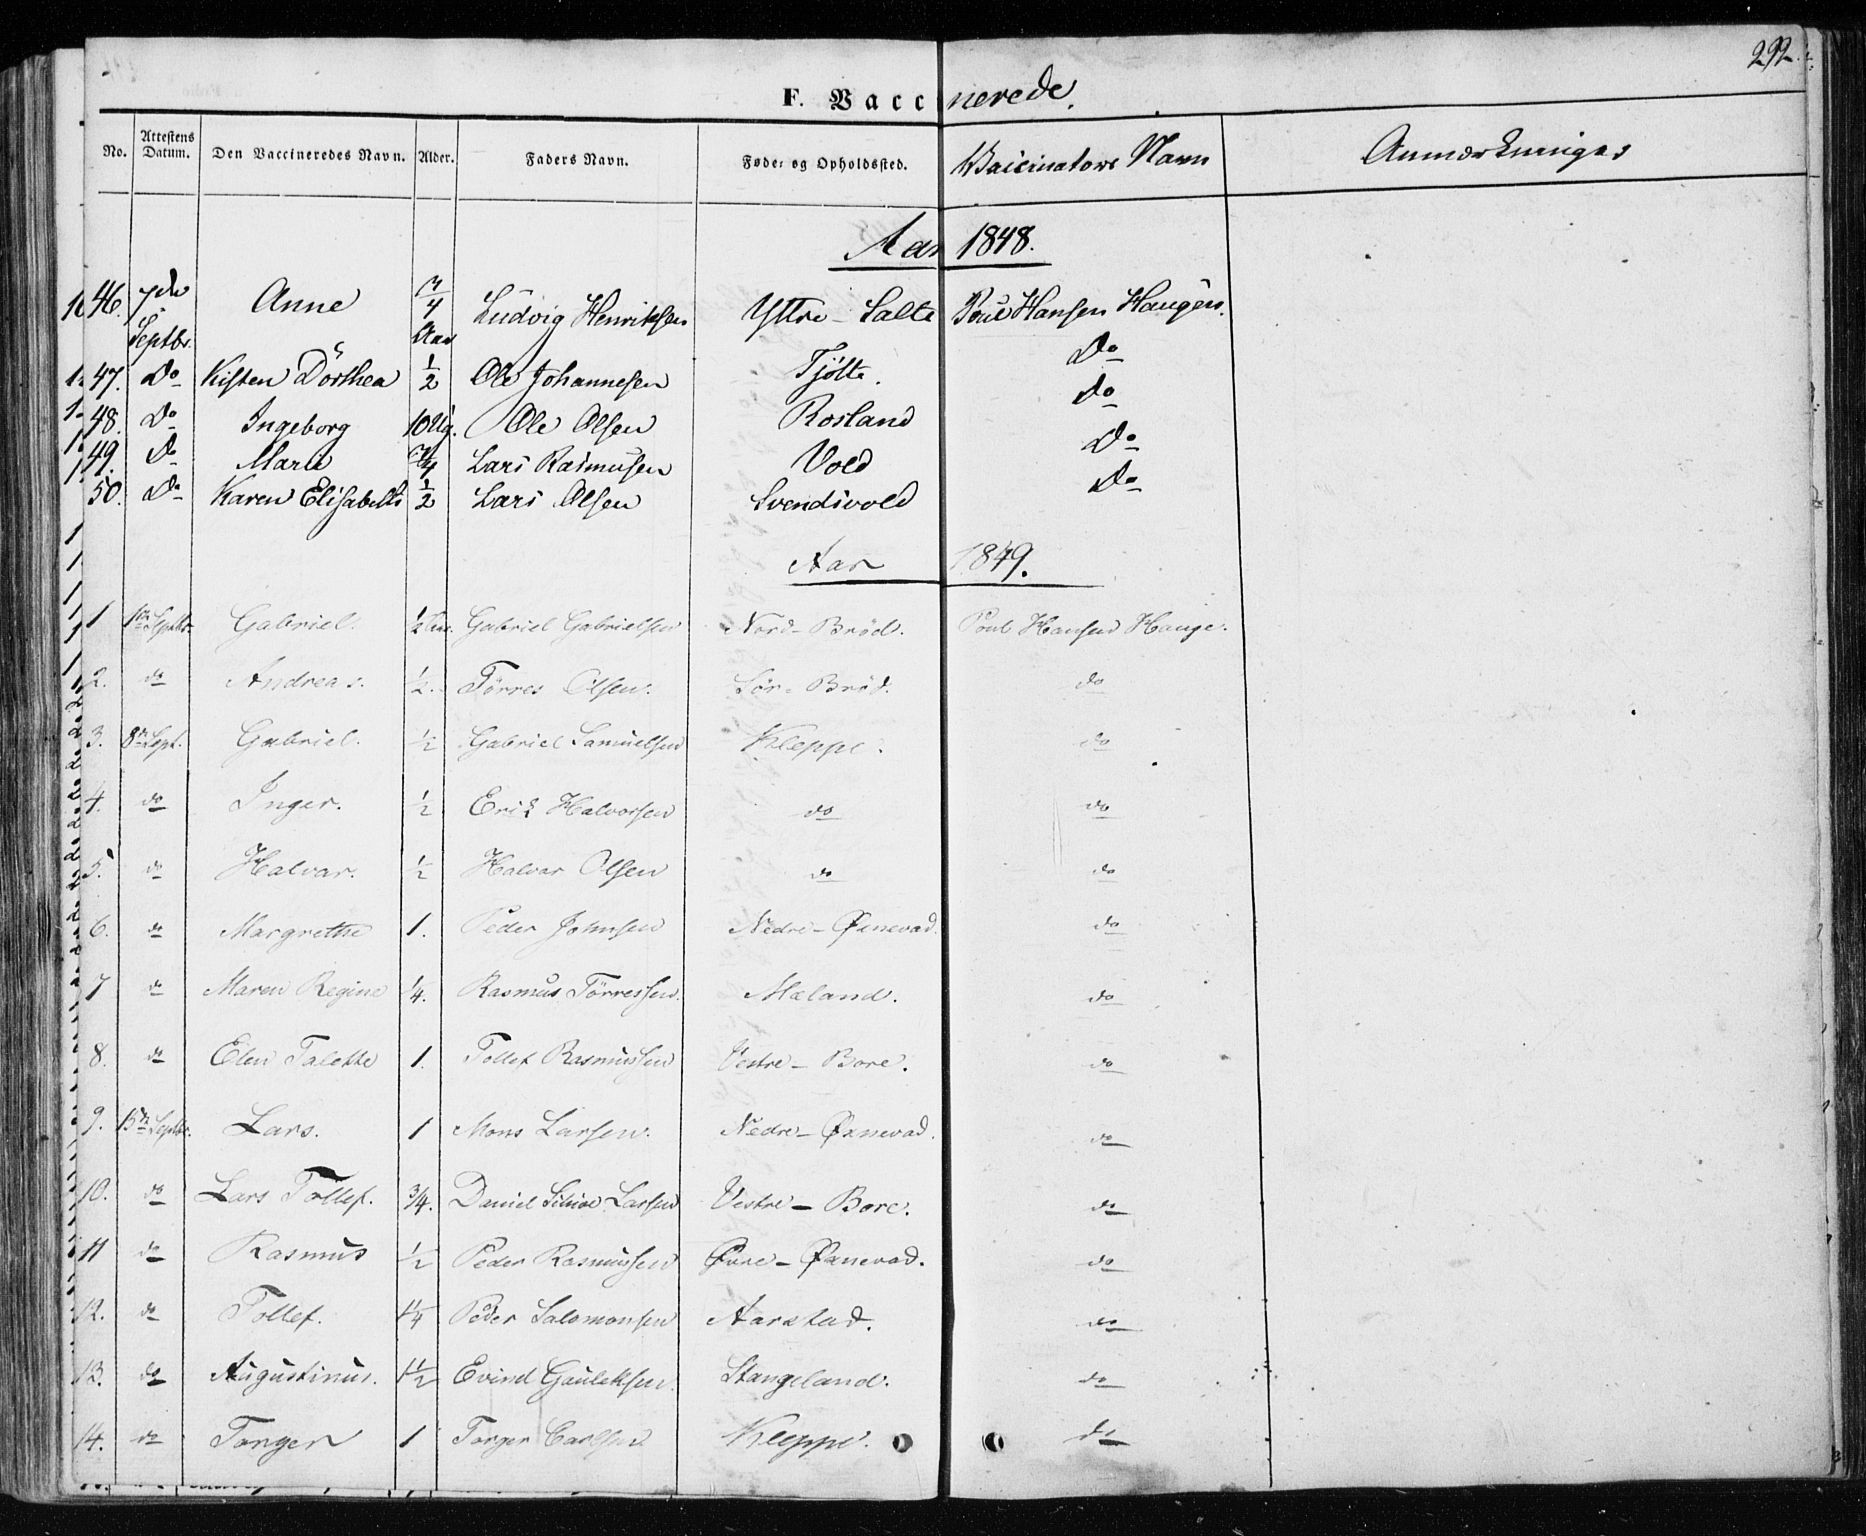 292.
F. Vaccinerede.
No. Attestens Datum. Den Vaccineredes Navn. Alder. Faders Navn. Føde- og Opholdssted. Vaccinators Navn Anmærkninger
Aar 1848.
46. 7de Septbr. Anne 3/4 Aar Ludvig Henriksen Yttre-Salte Poul Hansen Haugen.
47. Do Kisten Dorthea 1/2 Ole Johannesen Tjøtta. Do
48. Do Ingeborg 10 Ug. Ole Olsen Rosland Do
49. Do Maria 3/4 Lars Rasmusen Vold Do
50. Do Karen Elisabeth 1/2 Lars Olsen Svendsvold Do
Aar 1849.
1 1ste Septbr. Gabriel. 1/2 Aar. Gabriel Gabrielsen Nord-Bröd. Poul Hansen Hauge.
2. do Andreas. 1/2. Törres Olsen. Sör-Bröd. do
3. 8de Sept. Gabriel. 1/2 Gabriel Samuelsen Kleppe. do
4. do Inger. 1/2 Erik Halvorsen do do
5. do Halvar. 1/2 Halvar Olsen do do
6. do Margrethe 1. Peder Johnsen Nedre-Øxnevad. do
7 do Maren Regine 1/4. Rasmus Törressen. Mæland. do
8. do Elen Talette 1. Tollef Rasmussen Vestre-Bore. do
9. 15de Septbr. Lars. 1 Mons Larsen. Nedre-Øxnevad. do
10. do Lars Tollef. 3/4. Daniel Larsen Vestre-Bore. do
11 do Rasmus 1/2 Peder Rasmussen Øvre-Øxnevad. do
12. do Tollef. 1 1/4 Peder Salomonsen Aarstad. do
13. do Augustinus. 1 1/2 Evind Gauteksen. Stangeland. do
14. do Torger 1 Torger Carlsen Kleppe. do